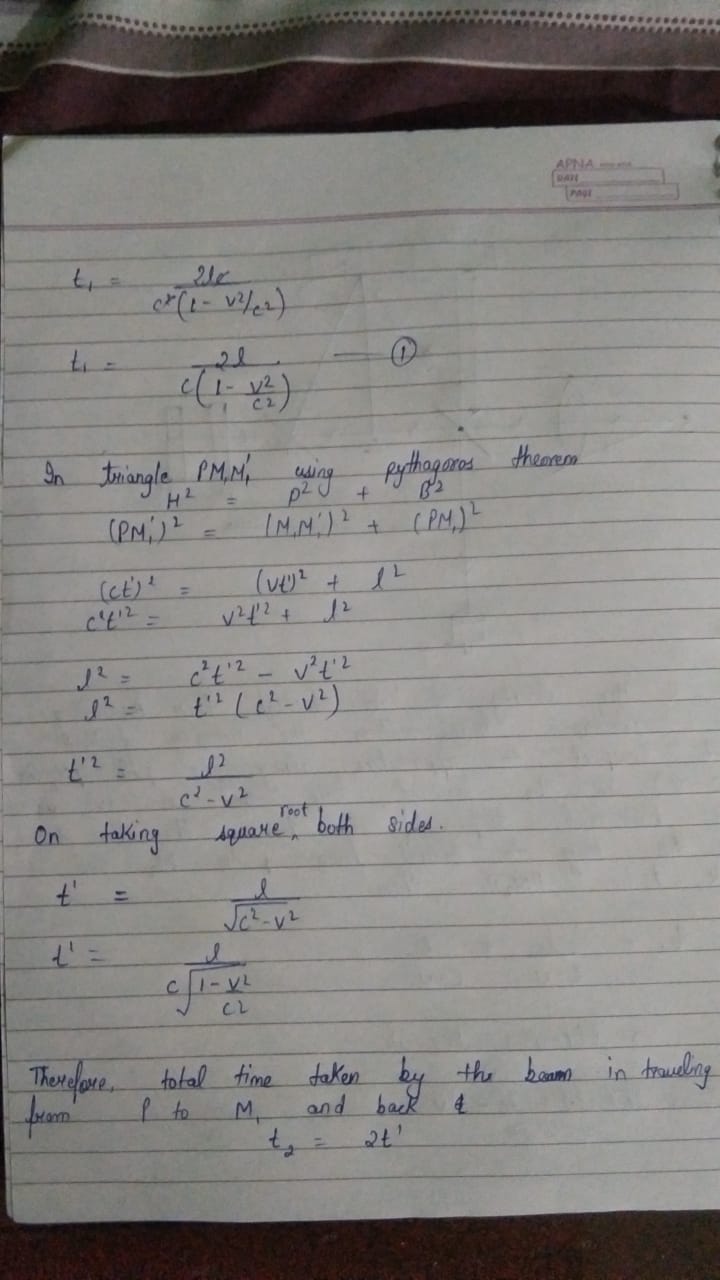 APNA
DATE
PAGE
t₁ = 2lc
c²(1 - v²/c²)
t₁ = 2l
c(1 - v²/c²) — ①
In triangle PM₁M₁' using pythagoras theorem
H² = P² + B²
(PM₁')² = (M₁M₁')² + (PM₁)²
(ct')² = (vt')² + l²
c²t'² = v²t'² + l²
l² = c²t'² - v²t'²
l² = t'² (c² - v²)
t'² = l²
c² - v²
On taking square root both sides.
t' = l
√c² - v²
t' = l
c√1 - v²/c²
Therefore, total time taken by the beam in traveling
from P to M₁ and back
t₂ = 2t'